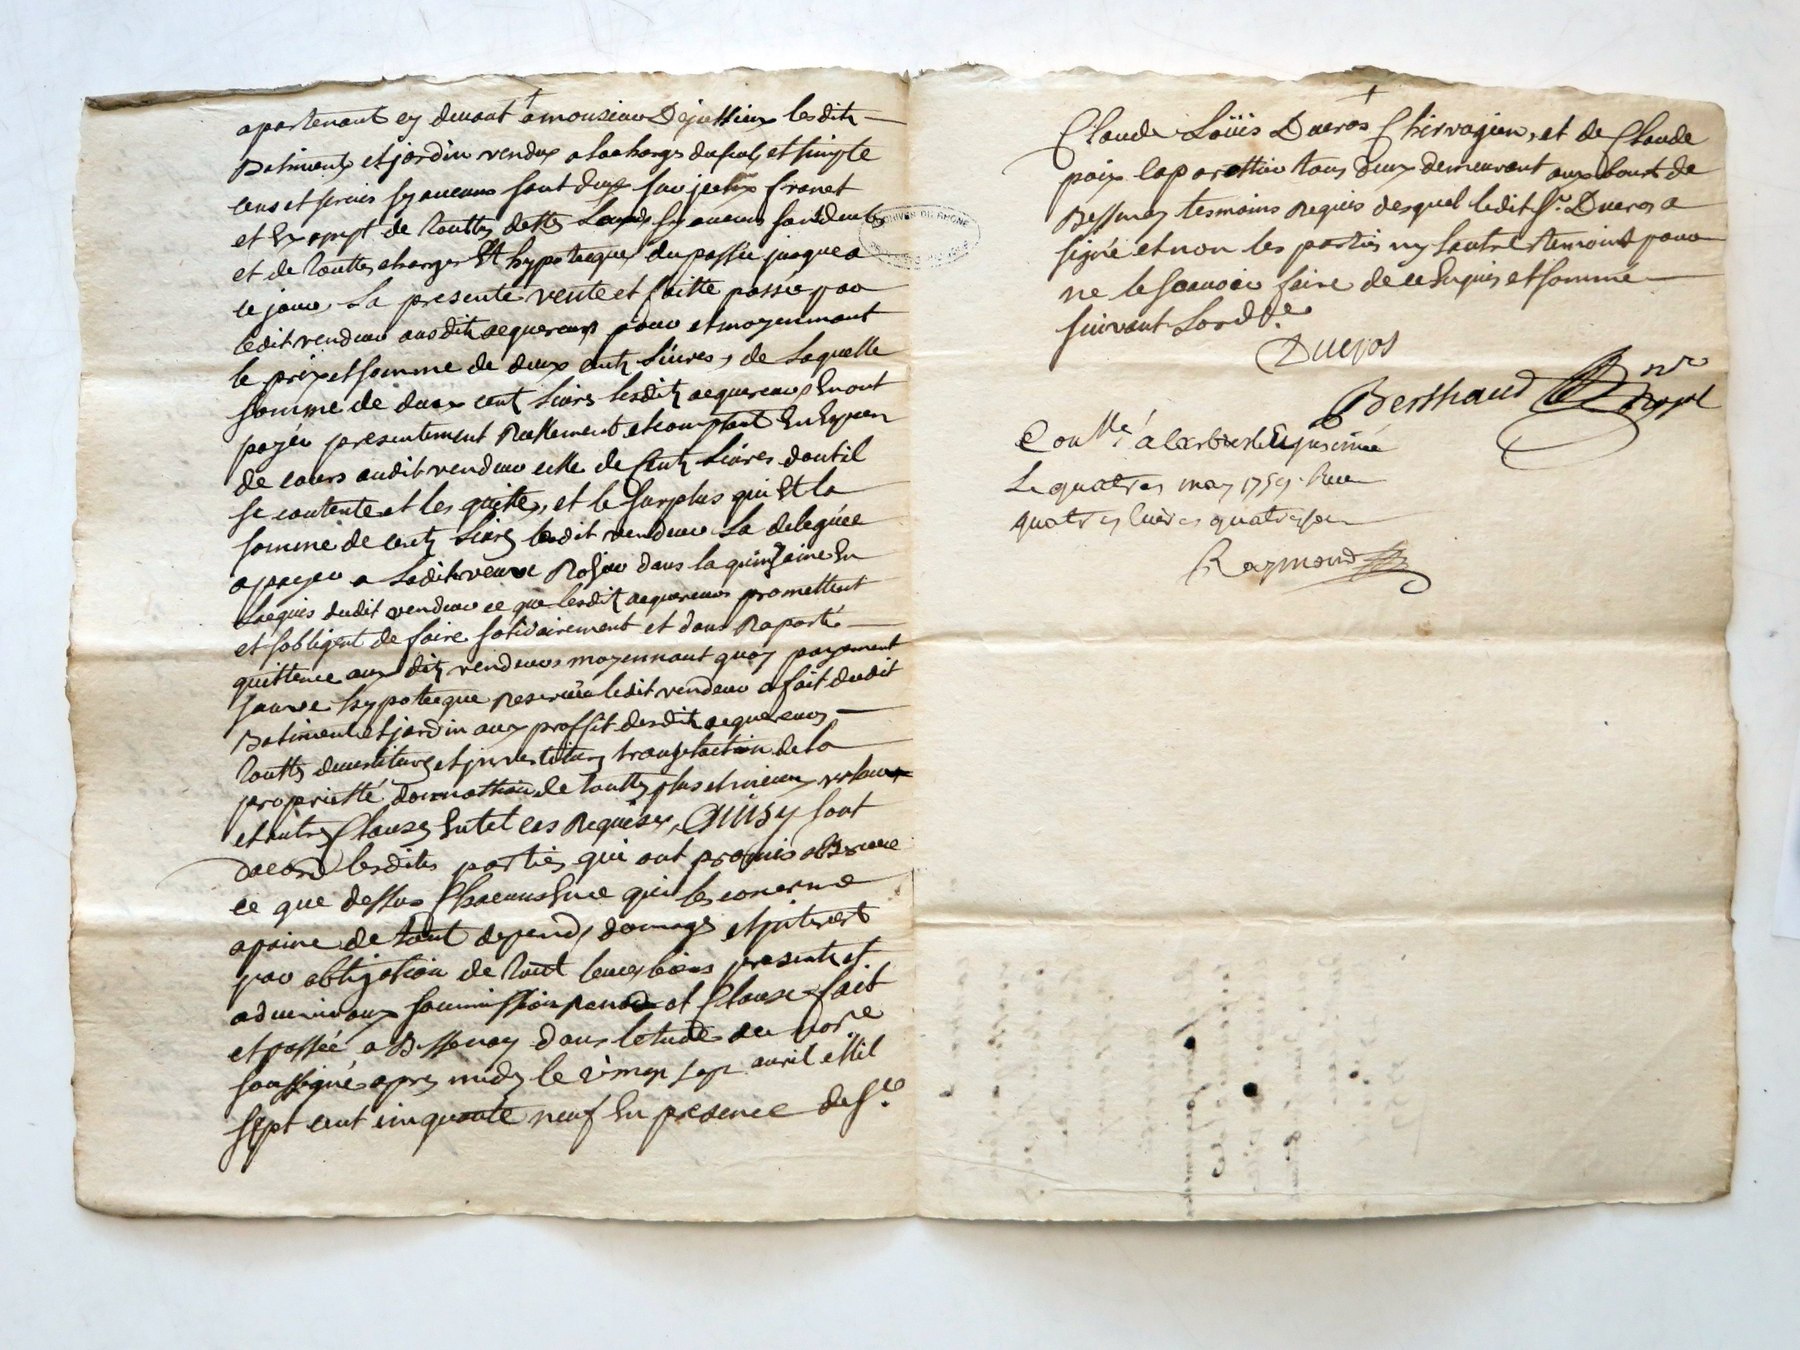 apartenant cy devant a monsieur Dejussieux lesdits
Batiments et jardin vendus a la charge du seul et simple
cens et servis sy aucuns sont dus sur jceux franct
et Exempt de touttes dettes Laus sy aucuns sont deubs
et de touttes charges Et hypoteques du passée jusque a
ce jour, La presente vente et faitte passée par
ledit vendeur ausdits acquereurs pour et moyennant
le prix et somme de deux cents Livres, de Laquelle
somme de deux cents Livres lesdits acquereurs En ont
payéz presentement Reellement et comptant En Especes
de cours audit vendeur celle de Cents Livres dont il
se contente et les quitte, et le surplus qui Et la
somme de cents Livres ledit vendeur La deleguée
a payer a Ladite veuve dans la quinzaine En
Lacquis dudit vendeur ce que lesdits acquereurs promettent
et sobligent de faire solidairement et dans Raporté
quittence aux dits vendeurs moyennant quoy payement
hypoteque Reservée ledit vendeur a fait dudit
Batiment et jardin aux proffit desdits acquereurs
touttes devestitures et jnvestitures translaction de la
proprietté donnation de touttes plus et mieux values
et autres Clauses En tel cas Requises, Ainsy sont
dacord lesdites parties qui ont promis observer
ce que dessus Chacuns En ce qui les concerne
a peine de tout depends domages et jnterest
par obligation de tout leurs biens presents et
advenir aux soumissions renon et Clause fait
et passée a Bessenay dans letude du no.re
soussigné apres midy le vingt sept avril Mil
sept cent cinquante neuf En presence de S.r
Claude Loüis Ducros Chirurgien, et de Claude
poix tous deux demeurant aux bourt de
Bessenay tesmoins Requis desquel ledit S.r Ducros a
signé et non les parties ny lautre temoins pour
ne le scavoir faire de ce Enquis et somme
suivant Lord.ce
Ducros
Berthaud
Con.lle a Larbresle
Le quatres may 1759. Reçu
quatres livres quatres sou
Raymond